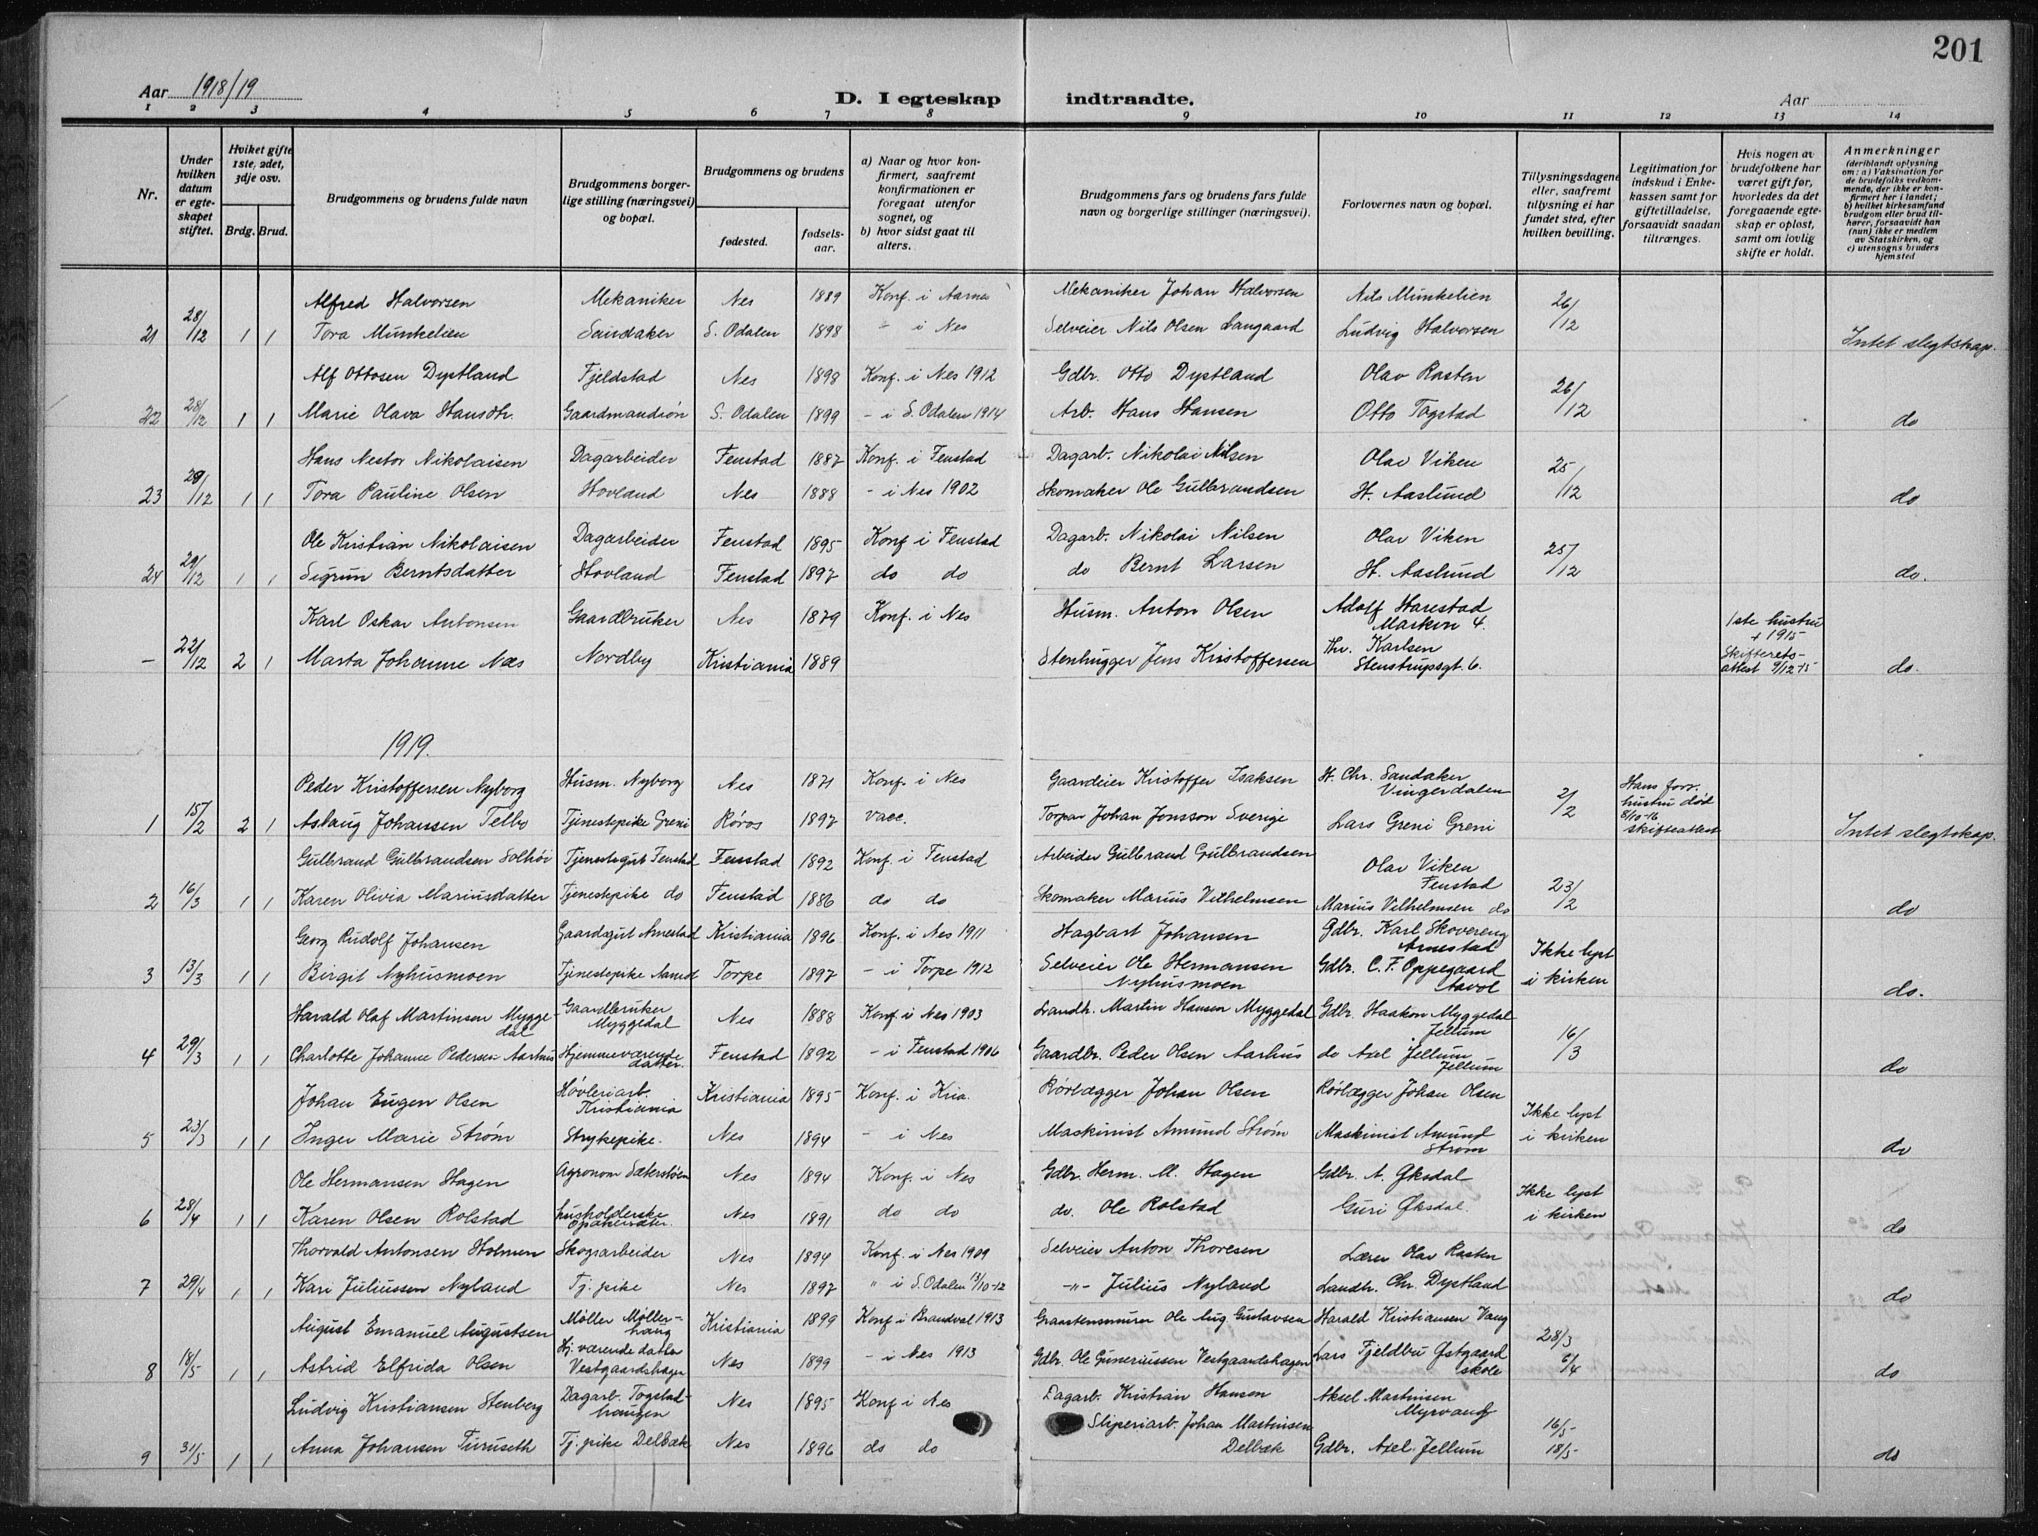 201
Aar 1918/19
D. I egteskap indtraadte.
Aar
1 2 3 4 5 6 7 8 9 10 11 12 13 14
Nr.
Under hvilken datum er egteskapet stiftet.
Hvilket gifte 1ste, 2det, 3dje osv.
Brdg. Brud.
Brudgommens og brudens fulde navn
Brudgommens borgerlige stilling (næringsvei) og bopæl.
Brudgommens og brudens
fødested. fødselsaar.
a) Naar og hvor konfirmert, saafremt konfirmationen er foregaat utenfor sognet, og
b) hvor sidst gaat til alters.
Brudgommens fars og brudens fars fulde navn og borgerlige stillinger (næringsvei).
Forlovernes navn og bopæl.
Tillysningsdagene eller, saafremt tillysning ei har fundet sted, efter hvilken bevilling.
Legitimation for indskud i Enkekassen samt for giftetilladelse, forsaavidt saadan tiltrænges.
Hvis nogen av brudefolkene har været gift før, hvorledes da det foregaaende egteskap er opløst, samt om lovlig skifte er holdt.
Anmerkninger
(deriblandt oplysning om: a) Vaksination for de brudefolks vedkommende, der ikke er konfirmert her i landet; b) hvilket kirkesamfund brudgom eller brud tilhører, forsaavidt han (hun) ikke er medlem av Statskirken, og c) utensogns bruders hjemsted
Alfred Halvorsen Mekaniker Nes 1889 Konf. i Aarnes Mekaniker Johan Halvorsen Nils Munkelien 26/12
21 28/12 1 1 Tora Munkelien Sandaker S. Odalen 1898 " i Nes Selveier Nils Olsen Langaard Ludvig Halvorsen Intet slegtskap.
Alf Ottosen Dystland Fjeldstad Nes 1898 Konf. i Nes 1912 Gdbr. Otto Dystland Olav Rasten 26/12
22 28/12 1 1 Marie Olava Hansdtr. S. Odalen 1899 - i S. Odalen 1914 Arb. Hans Hansen Otto Togstad do
Hans Nestor Nikolaisen Dagarbeider Fenstad 1887 Konf. i Fenstad Dagarb. Nikolai Nilsen Olav Viken 25/12
23 29/12 1 1 Tora Pauline Olsen Hovland Nes 1888 - i Nes 1902 Skomaker Ole Gulbrandsen H. Aaslund do
Ole Kristian Nikolaisen Dagarbeider Fenstad 1895 Konf i Fenstad Dagarb. Nikolai Nilsen Olav Viken 25/12
24 29/12 1 1 Sigrun Berntsdatter Hovland Fenstad 1897 do do do Bernt Larsen H. Aaslund do.
Karl Oskar Antonsen Gaardbruker Nes 1879 Konf. i Nes Husm. Anton Olsen Adolf Harestad Markvn 4. 1ste hustru + 1915
- 22/12 2 1 Marta Johanne Næs Nordby Kristiania 1889 Stenhugger Jens Kristoffersen Thr. Karlsen Stenstrupsgt. 6. Skifteretsattest 9/12-15 do.
1919.
Peder Kristoffersen Nyborg Husm. Nyborg Nes 1871 Konf. i Nes Gaardeier Kristoffer Isaksen H. Chr. Sandaker Vingerdalen 2/2 Hans forr. hustru død 8/10-16 skifteattest
1 15/2 2 1 Aslaug Johansen Telbo Tjenestepike Greni Røros 1897 Vacc. Torpar Johan Jonsson Sverige Lars Greni Greni Intet slegtskap.
Gulbrand Gulbrandsen Solhøi Tjenestegut Fenstad Fenstad 1892 Konf. i Fenstad Arbeider Gulbrand Gulbrandsen Olav Viken Fenstad 23/2
2 16/3 1 1 Karen Olivia Mariusdatter Tjenestepike do Fenstad 1886 do do Skomaker Marius Vilhelmsen Marius Vilhelmsen do do
Georg Rudolf Johansen Gaardsgut Arnestad Kristiania 1896 Konf. i Nes 1911 Hagbart Johansen Gdbr. Karl Skovereng Arnestad Ikke lyst i kirken
3 13/3 1 1 Birgit Nyhusmoen Tjenestepike Torpe 1897 - i Torpe 1912 Selveier Ole Hermansen Nyhusmoen Gdbr. C. F. Oppegaard do.
Harald Olaf Martinsen Myggedal Gaardbruker Myggedal Nes 1888 Konf. i Nes 1903 Landh. Martin Hansen Myggedal Gdbr. Haakon Myggedal Jellum 16/3
4 29/3 1 1 Charlotte Johanne Pedersen Aarhus Hjemmeværende datter. Fenstad 1892 - i Fenstad 1906 Gaardbr. Peder Olsen Aarhus do Axel Jellum Jellum do
Johan Eugen Olsen Høvleriarb. Kristiania Kristiania 1895 Konf. i Kria. Rørlægger Johan Olsen Rørlægger Johan Olsen Ikke lyst i kirken
5 23/3 1 1 Inger Marie Strøm Strykepike. Nes 1894 - i Nes Maskinist Amund Strøm Maskinist Amund Strøm do
Ole Hermansen Hagen Agronom Nes 1894 Konf. i Nes Gdbr. Herm. M. Hagen Gdbr. A. Øksdal Ikke lyst i kirken
6 28/4 1 1 Karen Olsen Rolstad Husholderske Nes 1891 do do do. Ole Rolstad Guri Øksdal. do
Thorvald Antonsen Holmen Skogsarbeider Nes 1894 Konf. i Nes 1909 Selveier Anton Thoresen Lærer Olav Rasten
7 29/4 1 1 Kari Juliussen Nyland Tj. pike Nes 1897 " i S. Odalen 13/10-12 -"- Julius Nyland Landh. Chr. Dystland do
August Emanuel Augustsen Møller Møllerhaug Kristiania 1899 Konf i Brandval 1913 Graastensmurer Ole Aug Gustavsen Harald Kristiansen Vang 28/3
8 18/5 1 1 Astrid Elfrida Olsen Hj. værende datter Vestgaardshagen Nes 1899 - i Nes 1913 Gdbr. Ole Guneriussen Vestgaardshagen Lars Fjeldbu Østgaard skole 6/4 do
Ludvig Kristiansen Stenberg Dagarb. Togstadhaugen Nes 1895 Konf i Nes Dagarb. Kristian Hansen Aksel Martinsen Myrvang 16/5
9 31/5 1 1 Anna Johansen Turuseth Tj. pike Delbæk Nes 1896 do do Sliperiarb. Johan Martinsen Delbæk Gdbr. Axel Jellum 18/5 do